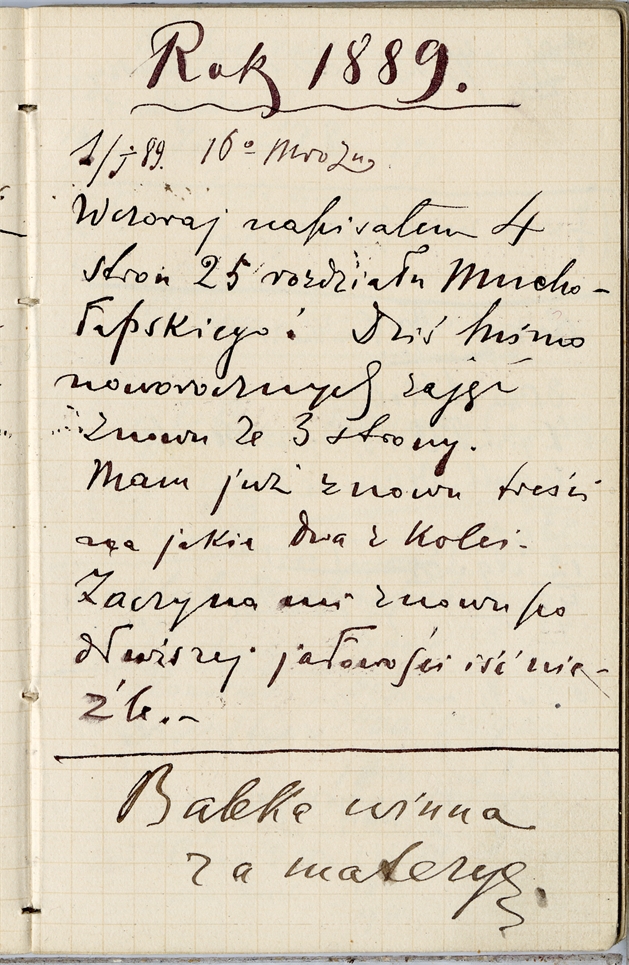 Rok 1889.
1/I 89. 16° mrozu
Wczoraj napisałem 4
stron 25 rozdziału Mucho-
łapskiego! Dziś mimo
noworocznych zajęć
znowu ze 3 strony.
Mam już znowu treści
na jakie dwa z kolei.
Zaczyna mi znowu po
dłuższej jałowości iść nie-
źle.-
Babka winna
za materyę.